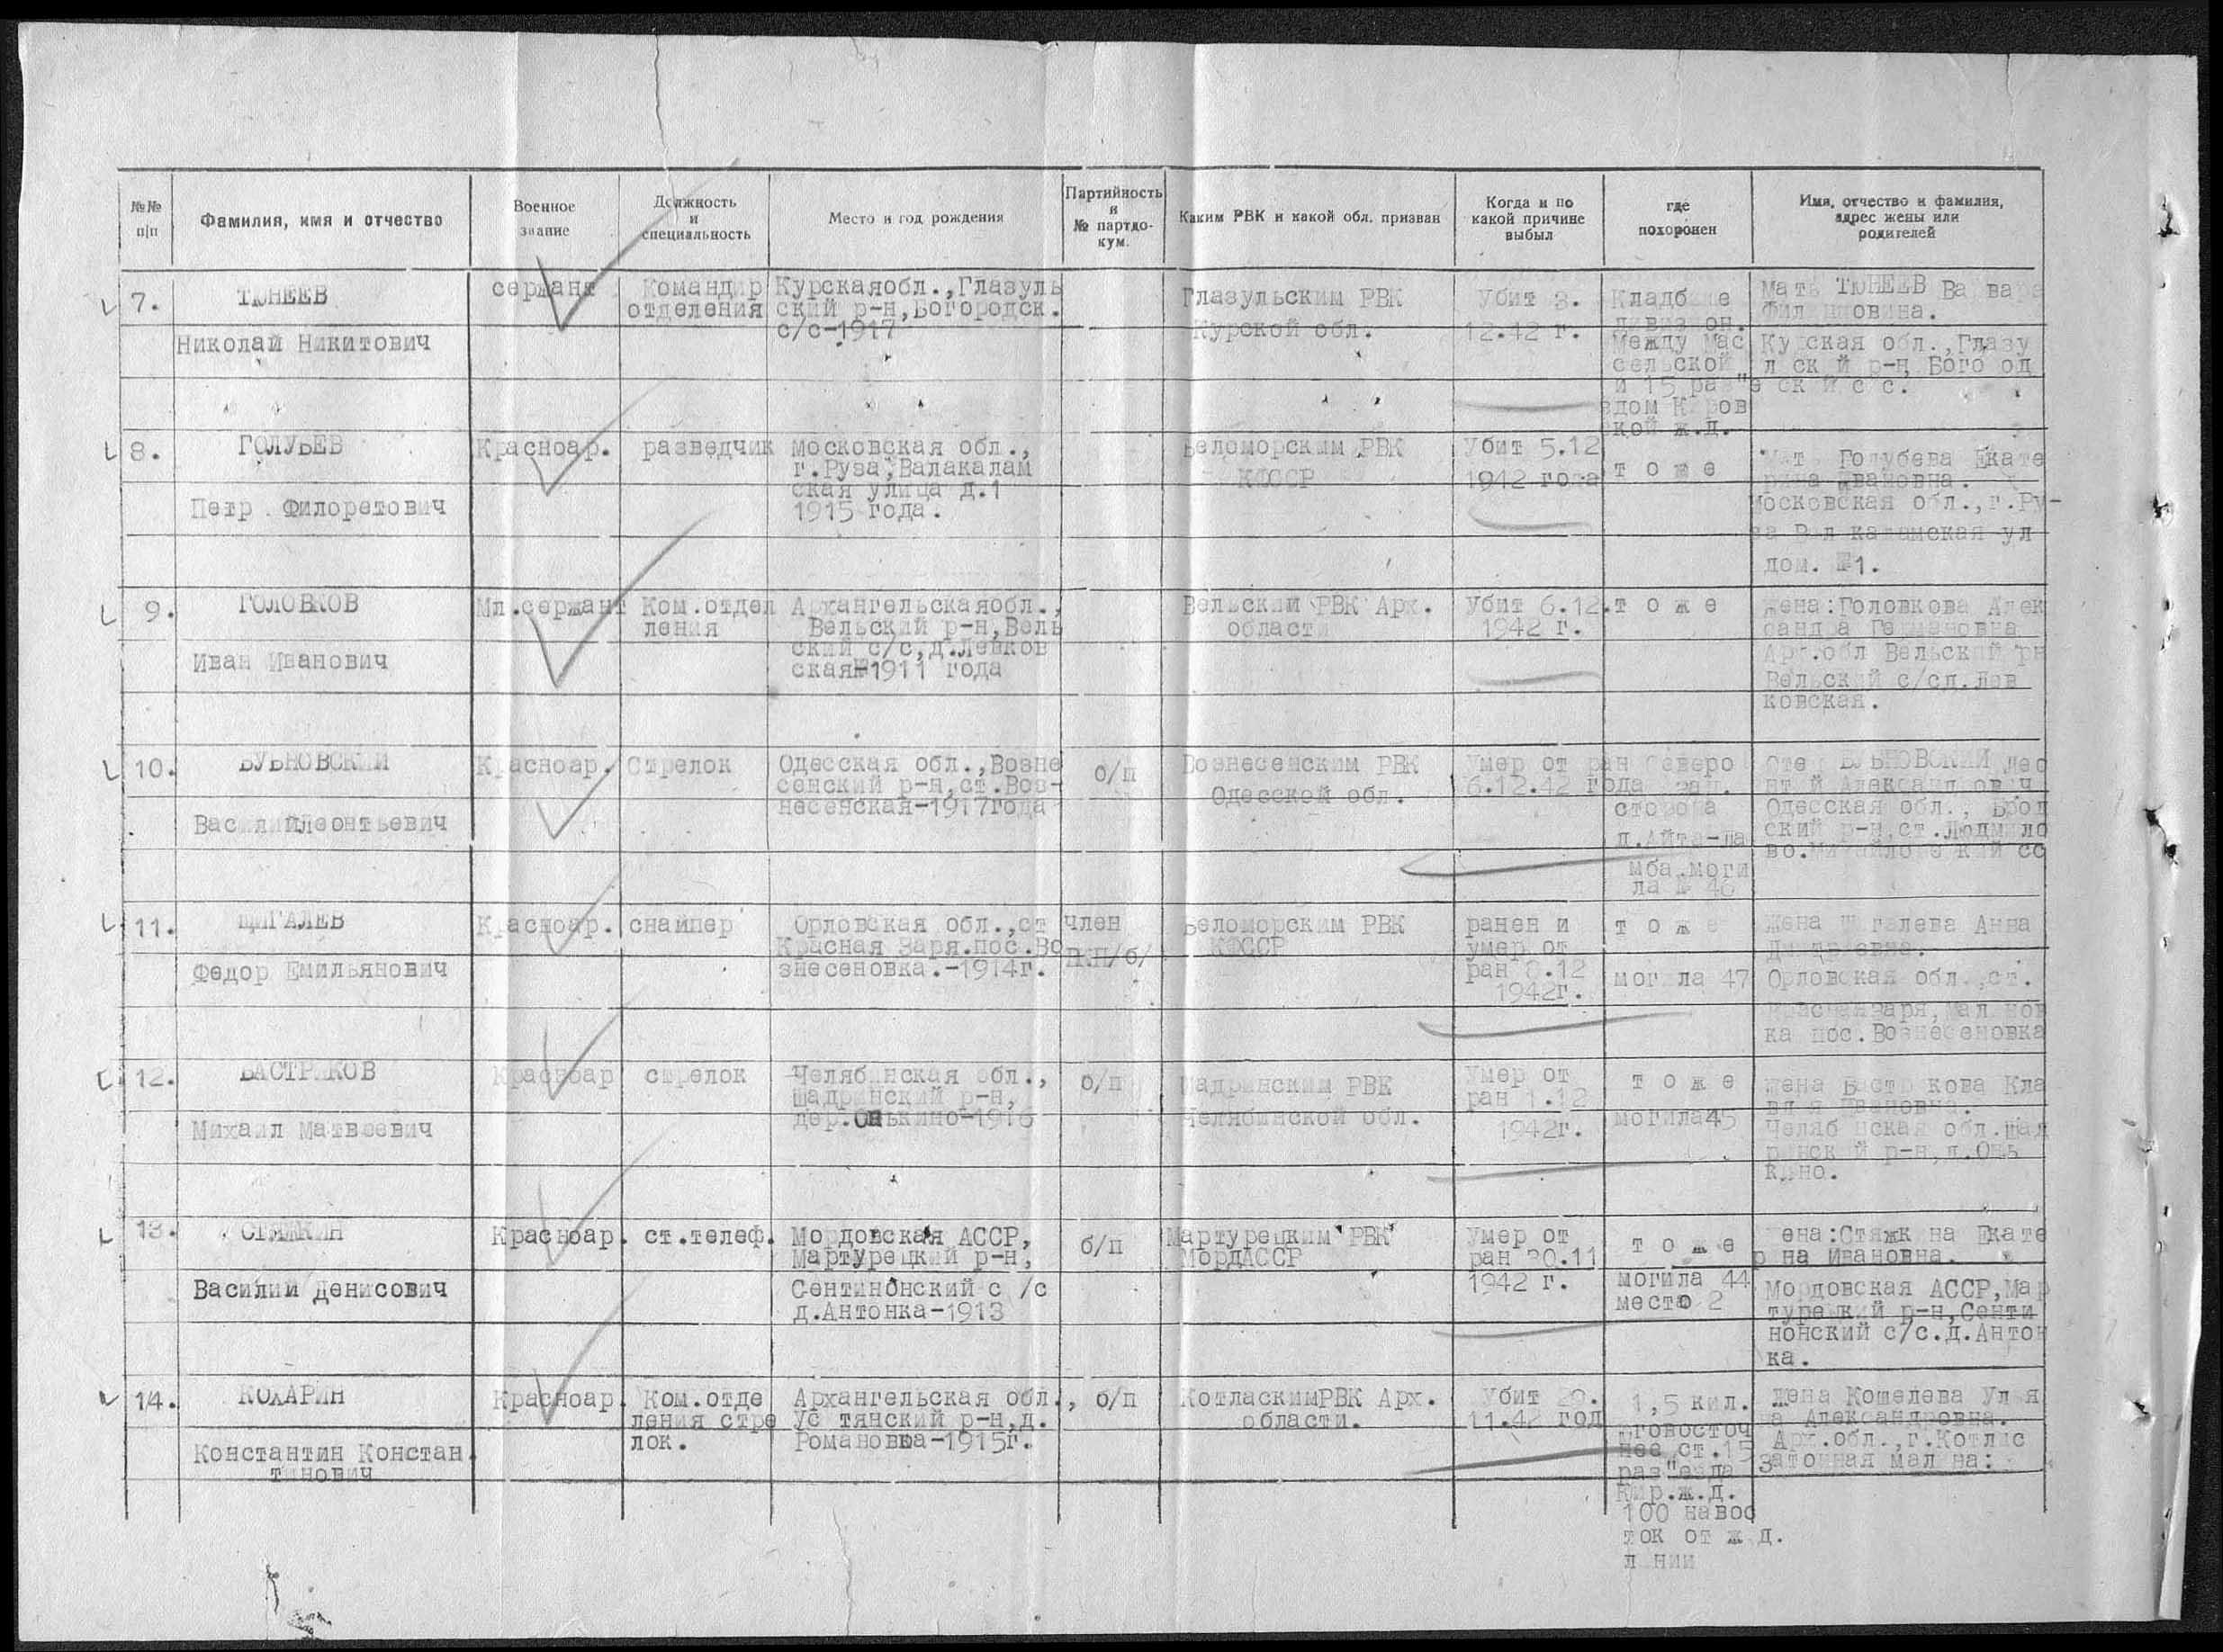 №№ п|п
Фамилия, имя и отчество
Военное звание
Должность и специальность
Место и год рождения
Партийность и № партдокум.
Каким РВК и какой обл. призван
Когда и по какой причине выбыл
где похоронен
Имя, отчество и фамилия, адрес жены или родителей
7.
ТЮНЕЕВ
Николай Никитович
сержант
Командир
отделения
Курскаяобл.,Глазуль
ский р-н,Богородск.
с/с-1917
Глазульским РВК
Курской обл.
Убит 3.
12.42 г.
Кладбище
дивизион.
между Мас
сельской
и 15 раз"е
здом Киров
кой ж.д.
Мать ТЮНЕЕВ Варвара
Курская обл.,Глазу
л ск й р-н, Бого од
ск й с/с.
8.
ГОЛУБЕВ
Петр Филоретович
Красноар.
разведчик
Московская обл.,
г.Руза,Валакалам
ская улица д.1
1915 года.
Беломорским РВК
КФССР
Убит 5.12
1942 года
т о ж е
Мать Голубева Екате
рина Ивановна.
Московская обл.,г.Ру-
за Вал каламская ул
дом. №1.
9.
ГОЛОВКОВ
Иван Иванович
Мл.сержант
Ком.отдел
ления
Архангельскаяобл.,
Вельский р-н,Вель
ский с/с,д.Левков
ская-1911 года
Вельский РВК Арх.
области
Убит 6.12.
1942 г.
т о ж е
Жена:Головкова Алек
сандра Германовна
Арх.обл Вельский рн
Вельский с/сд.Лев
ковская.
10.
БУБНОВСКИЙ
ВасилийЛеонтьевич
Красноар.
Стрелок
Одесская обл.,Возне
сенский р-н,ст.Воз-
несенская-1917года
б/п
Вознесенским РВК
Одесской обл.
Умер от ран
6.12.42 года
Северо
зап.
сторона
д.Айта-ла
мба,моги
ла № 46
Отец БУБНОВСКИЙ Лео
нт й Александрович
Одесская обл., Брод
ский р-н,ст.Людмило
во.Михайловский сс
11.
ЩИГАЛЕВ
Федор Емильянович
Красноар.
снайпер
Орловская обл.,ст
Красная Заря.пос.Во
знесеновка.-1914г.
член
ВКП/б/
Беломорским РВК
КФССР
ранен и
умер от
1942г.
т о ж е
могила 47
Жена Щ галева Анна
Дмитриевна.
Орловская обл.,ст.
ка пос.Вознесеновка
12.
БАСТРИКОВ
Михаил Матвеевич
Красноар
стрелок
Челябинская обл.,
Шадринский р-н,
дер.Онькино-1916
б/п
Шадринским РВК
Челябинской обл.
Умер от
ран 1.12
1942г.
т о ж е
могила45
Жена Бастрикова Кла
вдия Ивановна.
Челябинская обл.Шад
ринский р-н,д.Онь
кино.
13.
СТЯЖКИН
Василий Денисович
Красноар.
ст.телеф.
Мордовская АССР,
Мартурецкий р-н,
Сентинонский с /с
д.Антонка-1913
б/п
Мартурецким РВК
МордАССР
Умер от
ран 30.11
1942 г.
т о ж е
могила 44
место 2
ена:Стяжк на Екате
р на Ивановна.
Мордовская АССР,Мар
турецкий р-н,Сенти
нонский с/с.д.Антон
ка.
14.
Константин Констан
тинович
Красноар.
Ком.отде
ления стре
лок.
Архангельская обл.,
Ус тянский р-н,д.
Романовка-1915г.
б/п
КотласкимРВК Арх.
области.
Убит
11.42 год
1,5 кил.
юговосточ
нее ст.15
раз"езда
Кир.ж.д.
100 навос
ток от ж д.
л нии
Жена Кошелева Ул я
а Александровна.
Арх.обл.,г.Котлас
Затонная мал на: